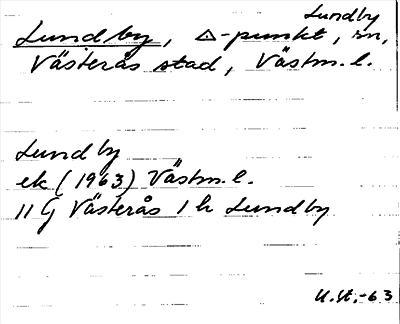 Lundby
Lundby, △-punkt, sn,
Västerås stad, Västm. l.
Lundby
ek (1963) Västm. l.
11 G Västerås 1 h Lundby
U.St.-63